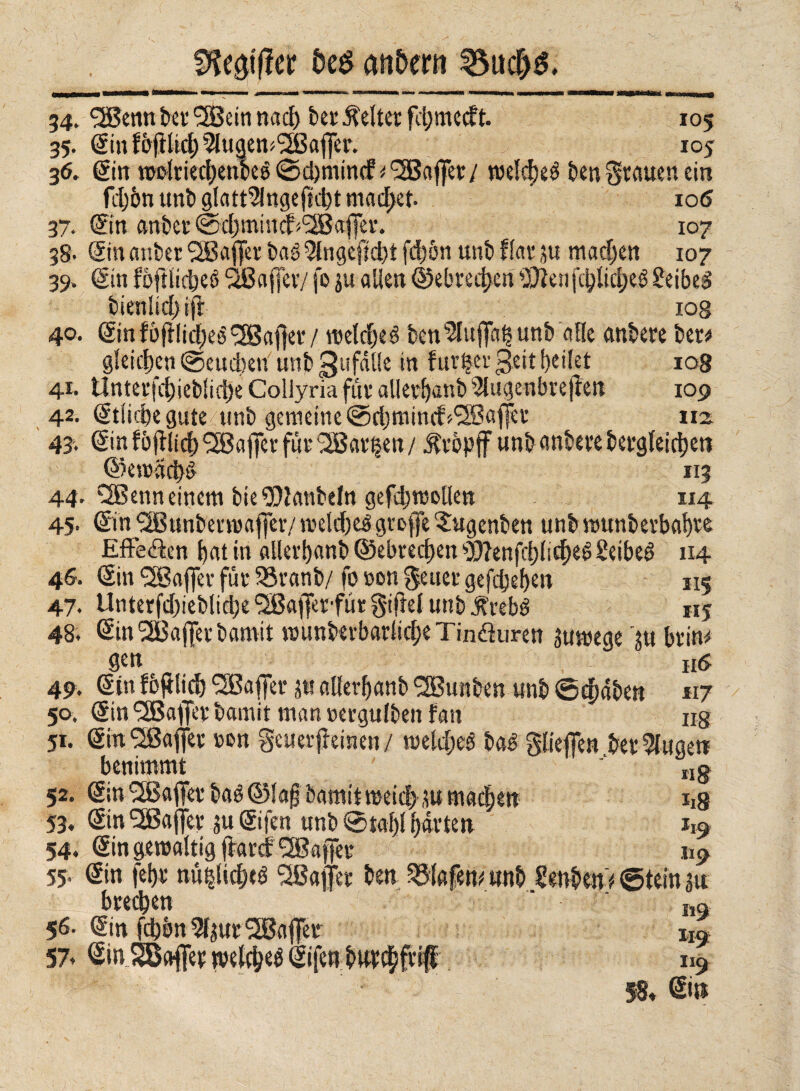 Regiſter des andern Buchs.
34. Wenn der Wein nach der Kelter ſchmeckt. 105
35. Ein köſtlich Augen⸗Waſſer. 105
36. Ein wolriechendes Schminck⸗Waſſer / welches den Frauen ein
ſchön und glatt Angeſicht machet. 106
37. Ein ander Schminck⸗Waſſer. 107
38. Ein ander Waſſer das Angeſicht ſchön und klar zu machen 107
39. Ein köſtliches Waſſer / ſo zu allen Gebrechen Menſchliches Leibes
dienlich iſt 108
40. Ein köſtliches Waſſer / welches den Auſſatz und alle andere der⸗
gleichen Seuchen und Zufälle in kurtzer Zeit heilet 108
41. Unterſchiedliche Collyria für allerhand Augenbreſten 109
42. Etliche gute und gemeine Schminck⸗Waſſer 112
43. Ein köſtlich Waſſer für Wartzen / Kröpff und andere dergleichen
Gewächs 113
44. Wenn einem die Mandeln geſchwollen 114
45. Ein Wunderwaſſer / welches groſſe Tugenden und wunderbahre
Effecten hat in allerhand Gebrechen Menſchliches Leibes 114
46. Ein Waſſer für Brand / ſo von Feuer geſchehen 115
47. Unterſchiedliche Waſſer für Fiſtel und Krebs 115
48. Ein Waſſer damit wunderbarliche Tincturen zuwege zu brin⸗
gen 116
49. Ein köſtlich Waſſer zu allerhand Wunden und Schäden 117
50. Ein Waſſer damit man vergulden kan 118
51. Ein Waſſer von Feuerſteinen / welches das Flieſſen der Augen
benimmt 118
52. Ein Waſſer das Glaß damit weich zu machen 118
53. Ein Waſſer zu Eiſen und Stahl härten 119
54. Ein gewaltig ſtarck Waſſer 119
55. Ein ſehr nützliches Waſſer den Blaſen⸗ und Lenden⸗Stein zu
brechen 119
56. Ein ſchön Azur Waſſer 119
57. Ein Waſſer welches Eiſen durchfriſt 119
58. Ein